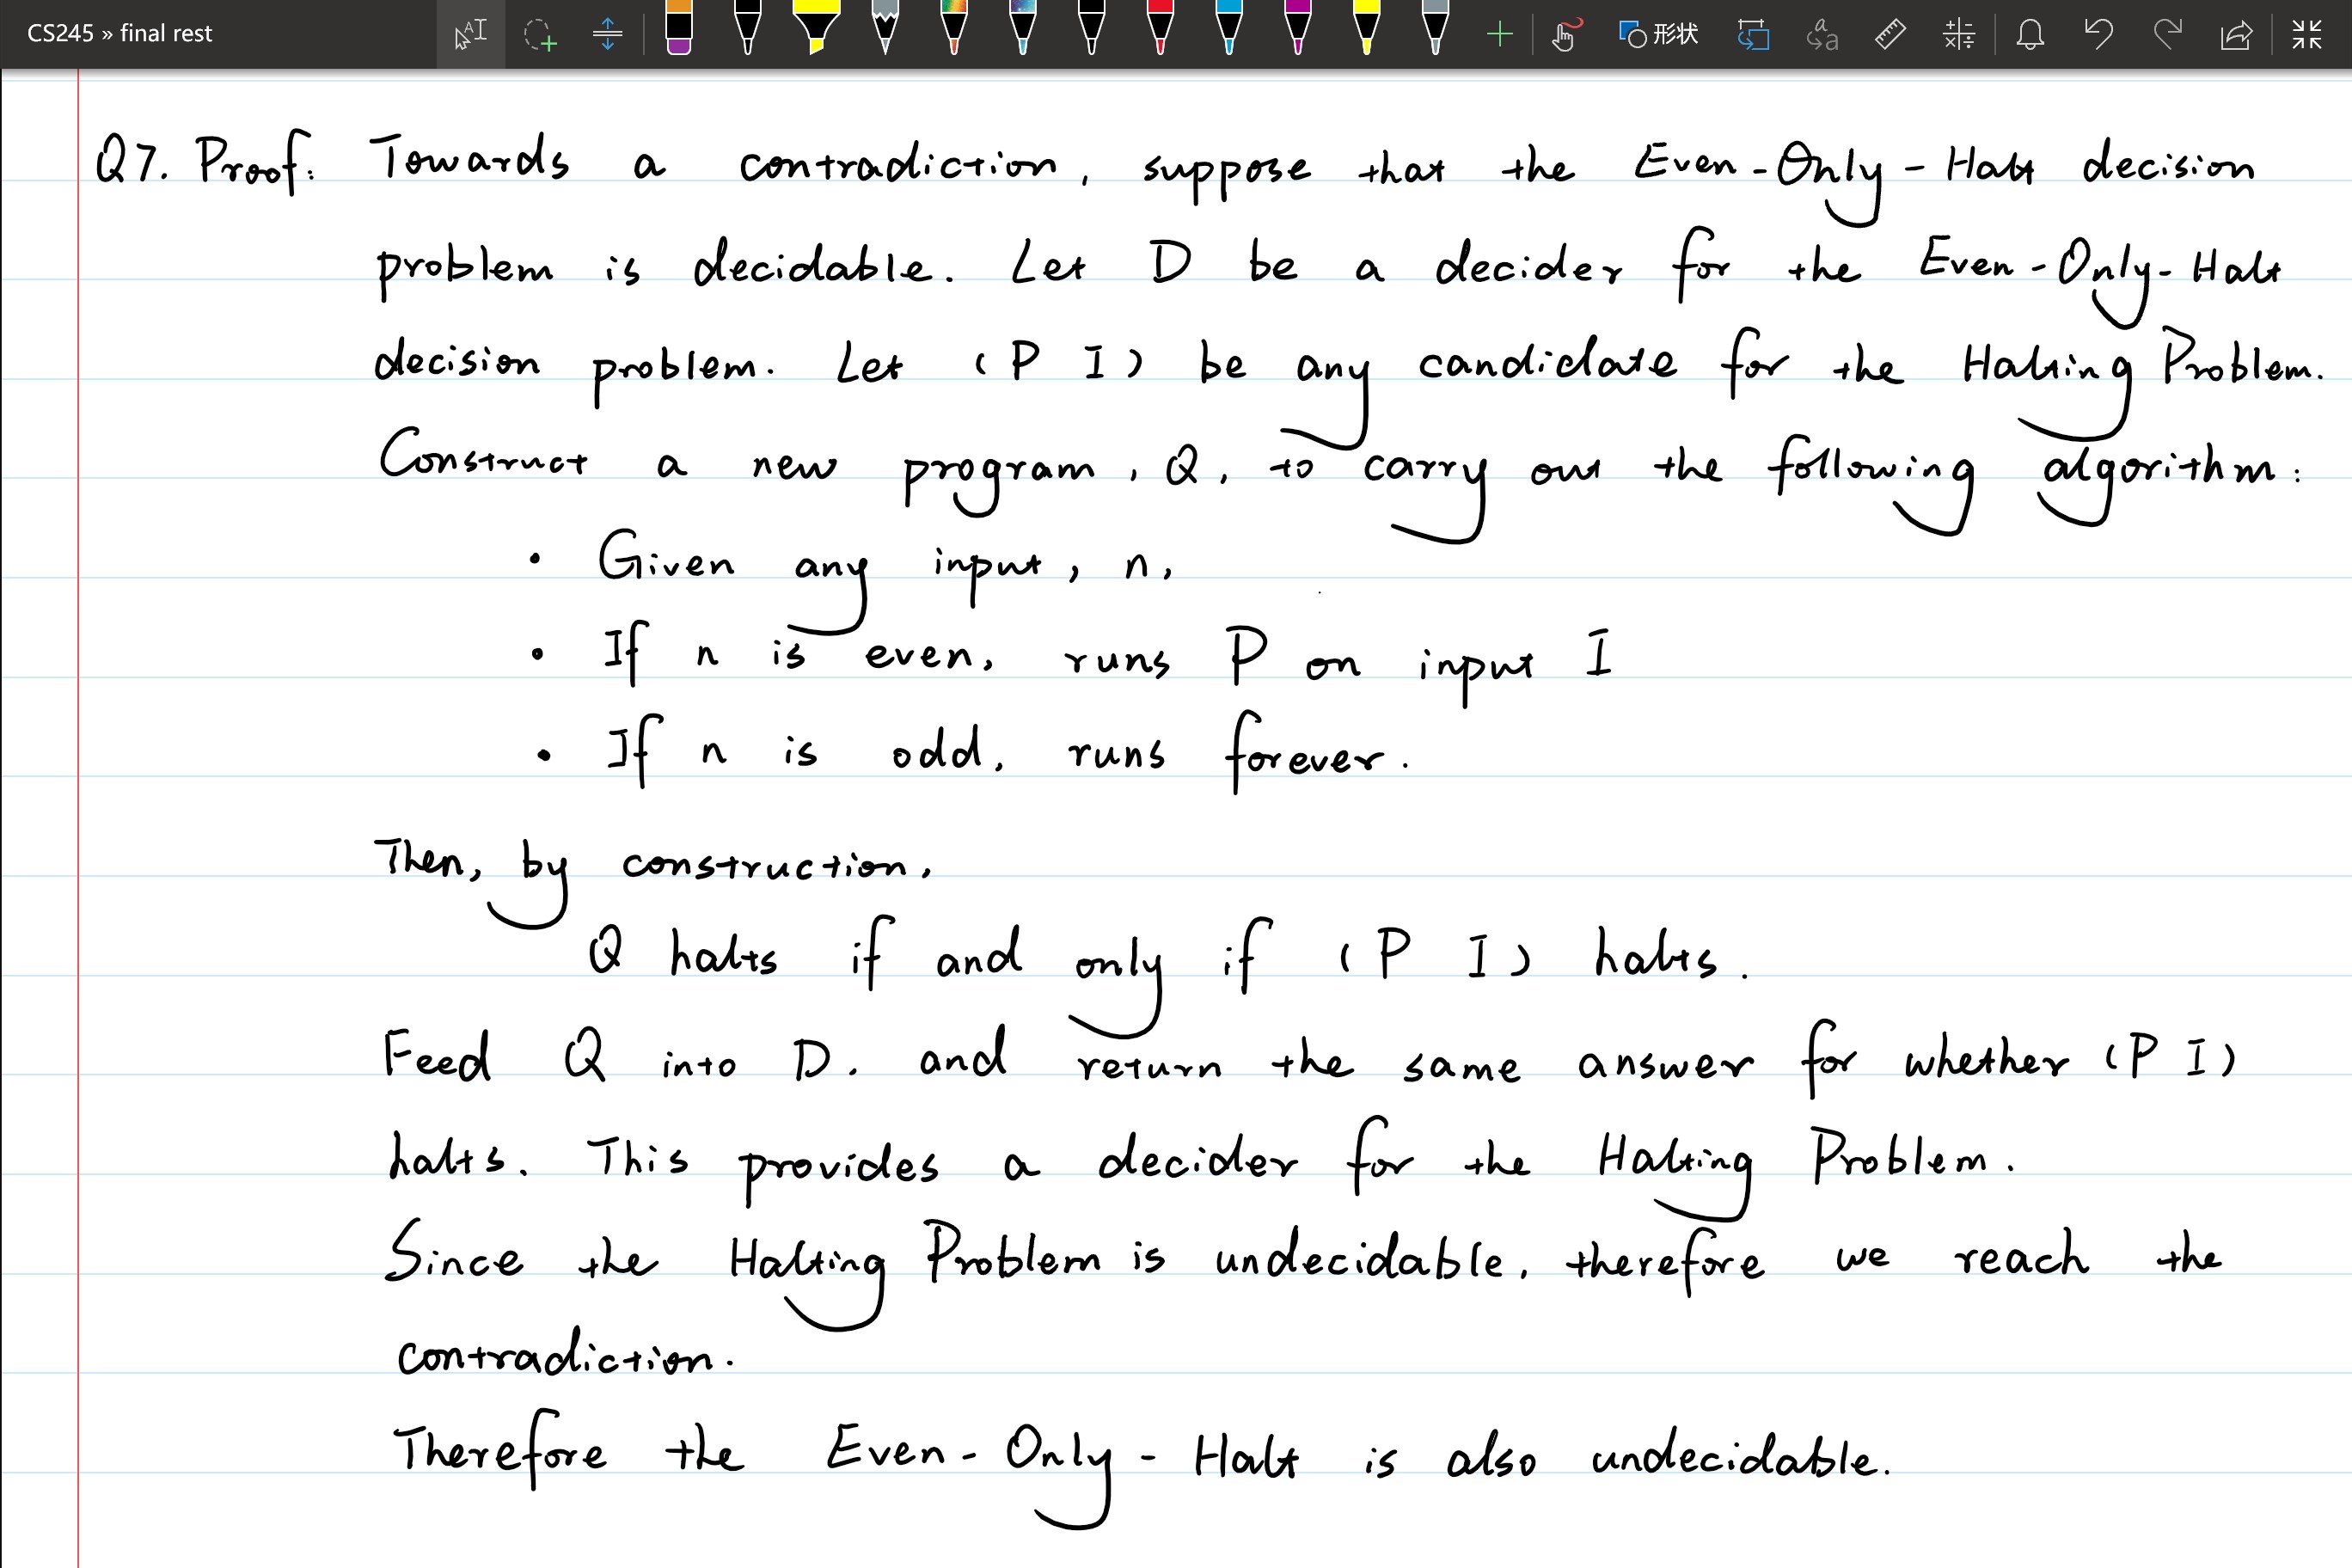 CS245 » final rest
形状
Q7. Proof: Towards a contradiction, suppose that the Even-Only-Halt decision
problem is decidable. Let D be a decider for the Even-Only-Halt
decision problem. Let (P I) be any candidate for the Halting Problem.
Construct a new program, Q, to carry out the following algorithm:
• Given any input, n,
• If n is even, runs P on input I
• If n is odd, runs forever.
Then, by construction,
Q halts if and only if (P I) halts.
Feed Q into D, and return the same answer for whether (P I)
halts. This provides a decider for the Halting Problem.
Since the Halting Problem is undecidable, therefore we reach the
contradiction.
Therefore the Even-Only-Halt is also undecidable.